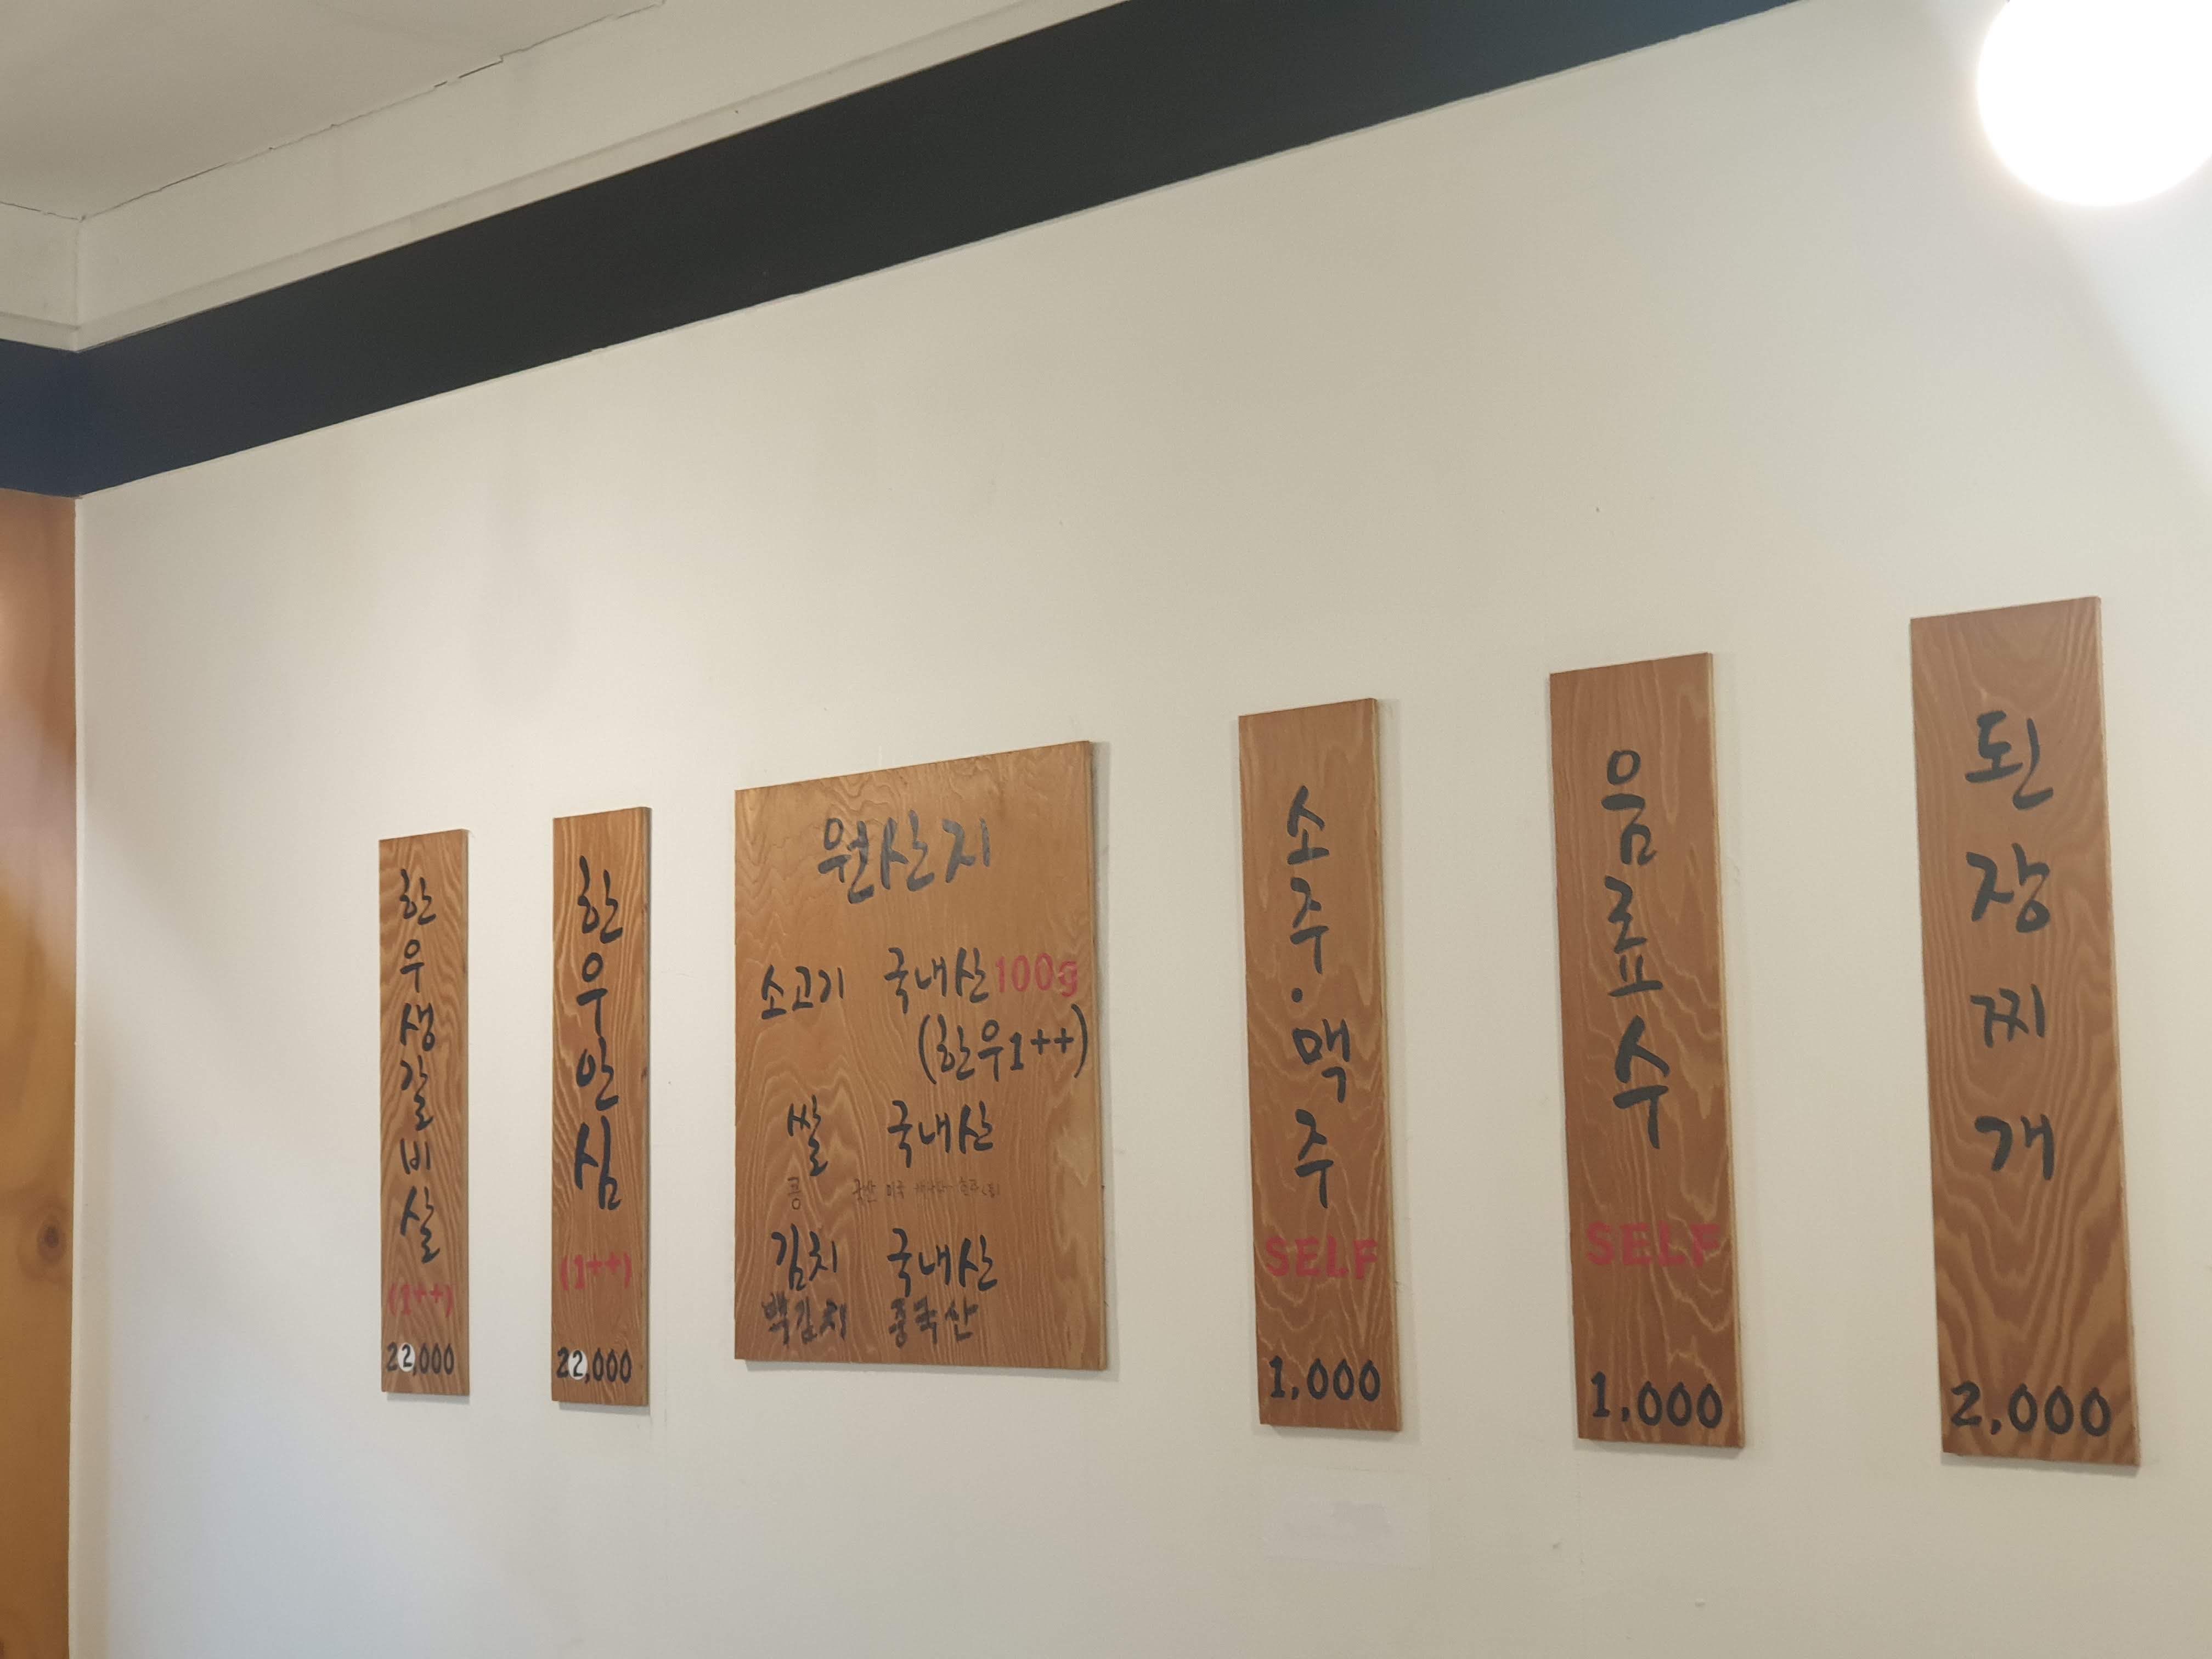 한우생갈비살
(1++)
22,000
한우안심
(1++)
22,000
원산지
소고기 국내산 100g
(한우1++)
쌀 국내산
콩 국산 미국
김치 국내산
백김치 중국산
소주·맥주
SELF
1,000
음료수
SELF
1,000
된장찌개
2,000